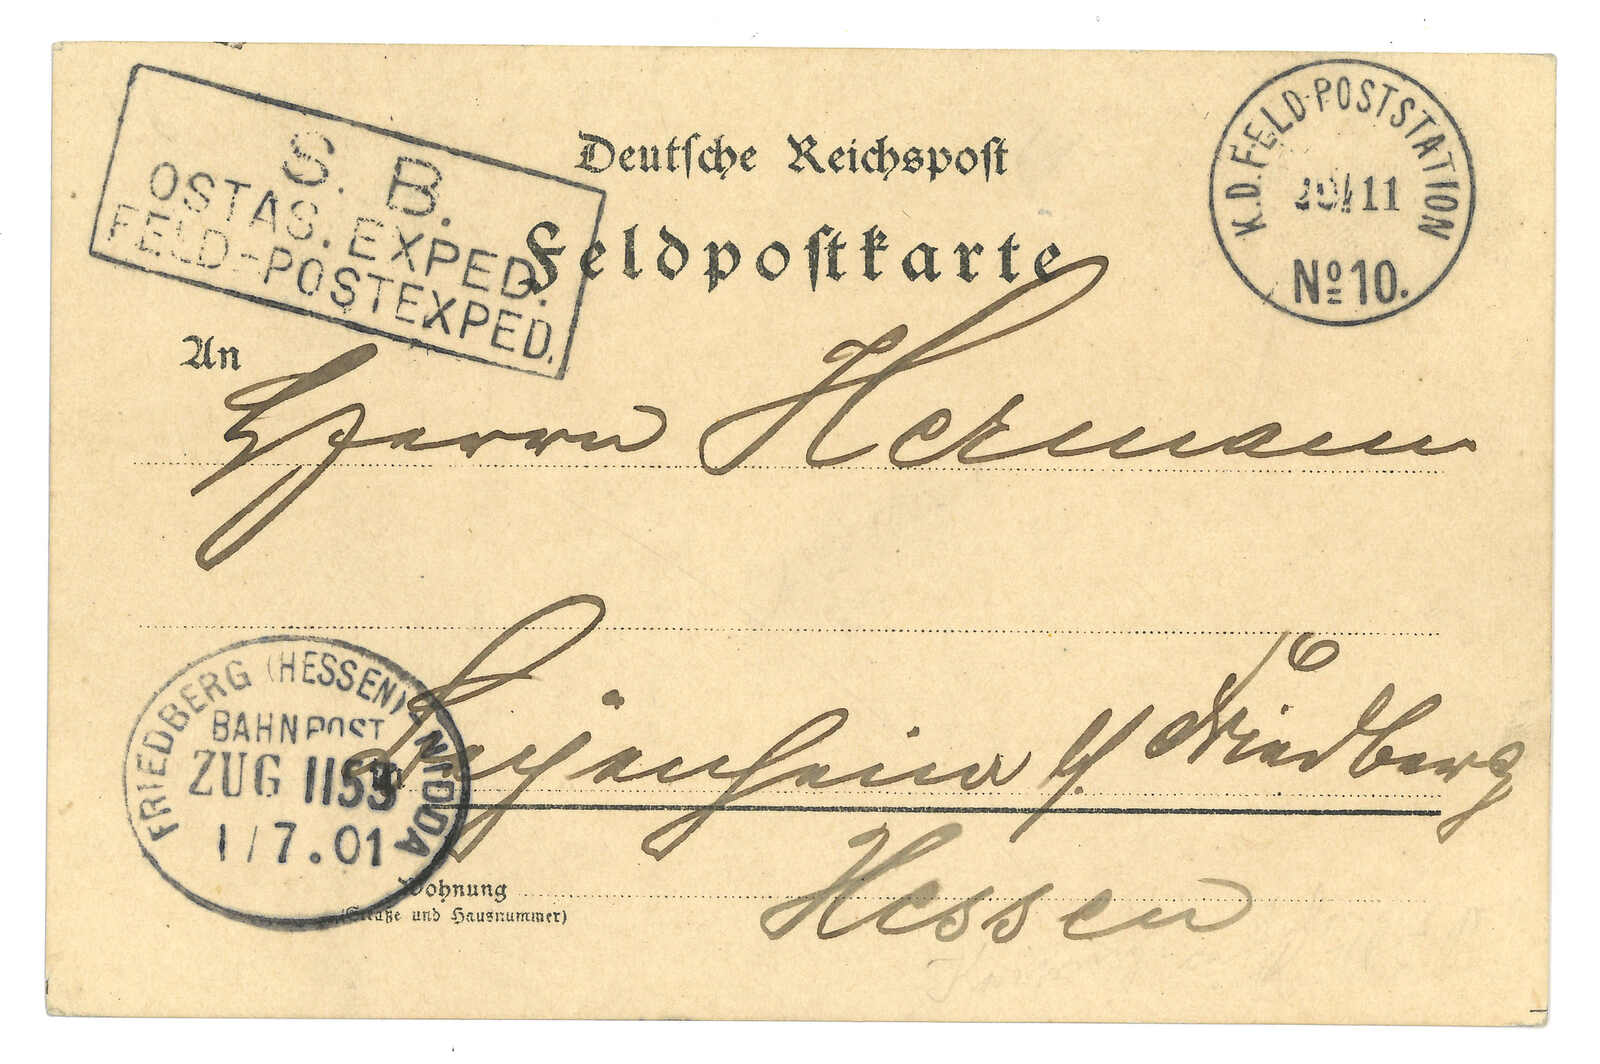 S. B.
OSTAS. EXPED.
FELD-POSTEXPED.
Deutſche Reichspoſt
Feldpoſtkarte
K.D. FELD-POSTSTATION
11
No 10.
An
Herrn Hermann
FRIEDBERG (HESSEN) - NIDDA
BAHNPOST
ZUG 1153
1/7.01
Friedberg
Hessen
Wohnung
(Straße und Hausnummer)